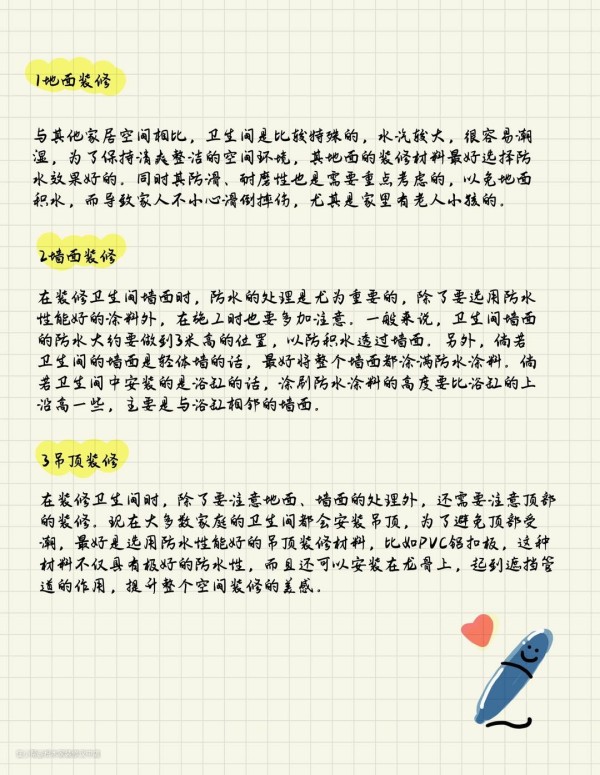 1地面装修
与其他家居空间相比，卫生间是比较特殊的，水汽较大，很容易潮
湿，为了保持清爽整洁的空间环境，其地面的装修材料最好选择防
水效果好的．同时其防滑、耐磨性也是需要重点考虑的，以免地面
积水，而导致家人不小心滑倒摔伤，尤其是家里有老人小孩的．
2墙面装修
在装修卫生间墙面时，防水的处理是尤为重要的，除了要选用防水
性能好的涂料外，在施工时也要多加注意．一般来说，卫生间墙面
的防水大约要做到3米高的位置，以防积水透过墙面．另外，倘若
卫生间的墙面是轻体墙的话，最好将整个墙面都涂满防水涂料．倘
若卫生间中安装的是浴缸的话，涂刷防水涂料的高度要比浴缸的上
沿高一些，主要是与浴缸相邻的墙面．
3吊顶装修
在装修卫生间时，除了要注意地面、墙面的处理外，还需要注意顶部
的装修．现在大多数家庭的卫生间都会安装吊顶，为了避免顶部受
潮，最好是选用防水性能好的吊顶装修材料，比如PVC铝扣板，这种
材料不仅具有极好的防水性，而且还可以安装在龙骨上，起到遮挡管
道的作用，提升整个空间装修的美感．